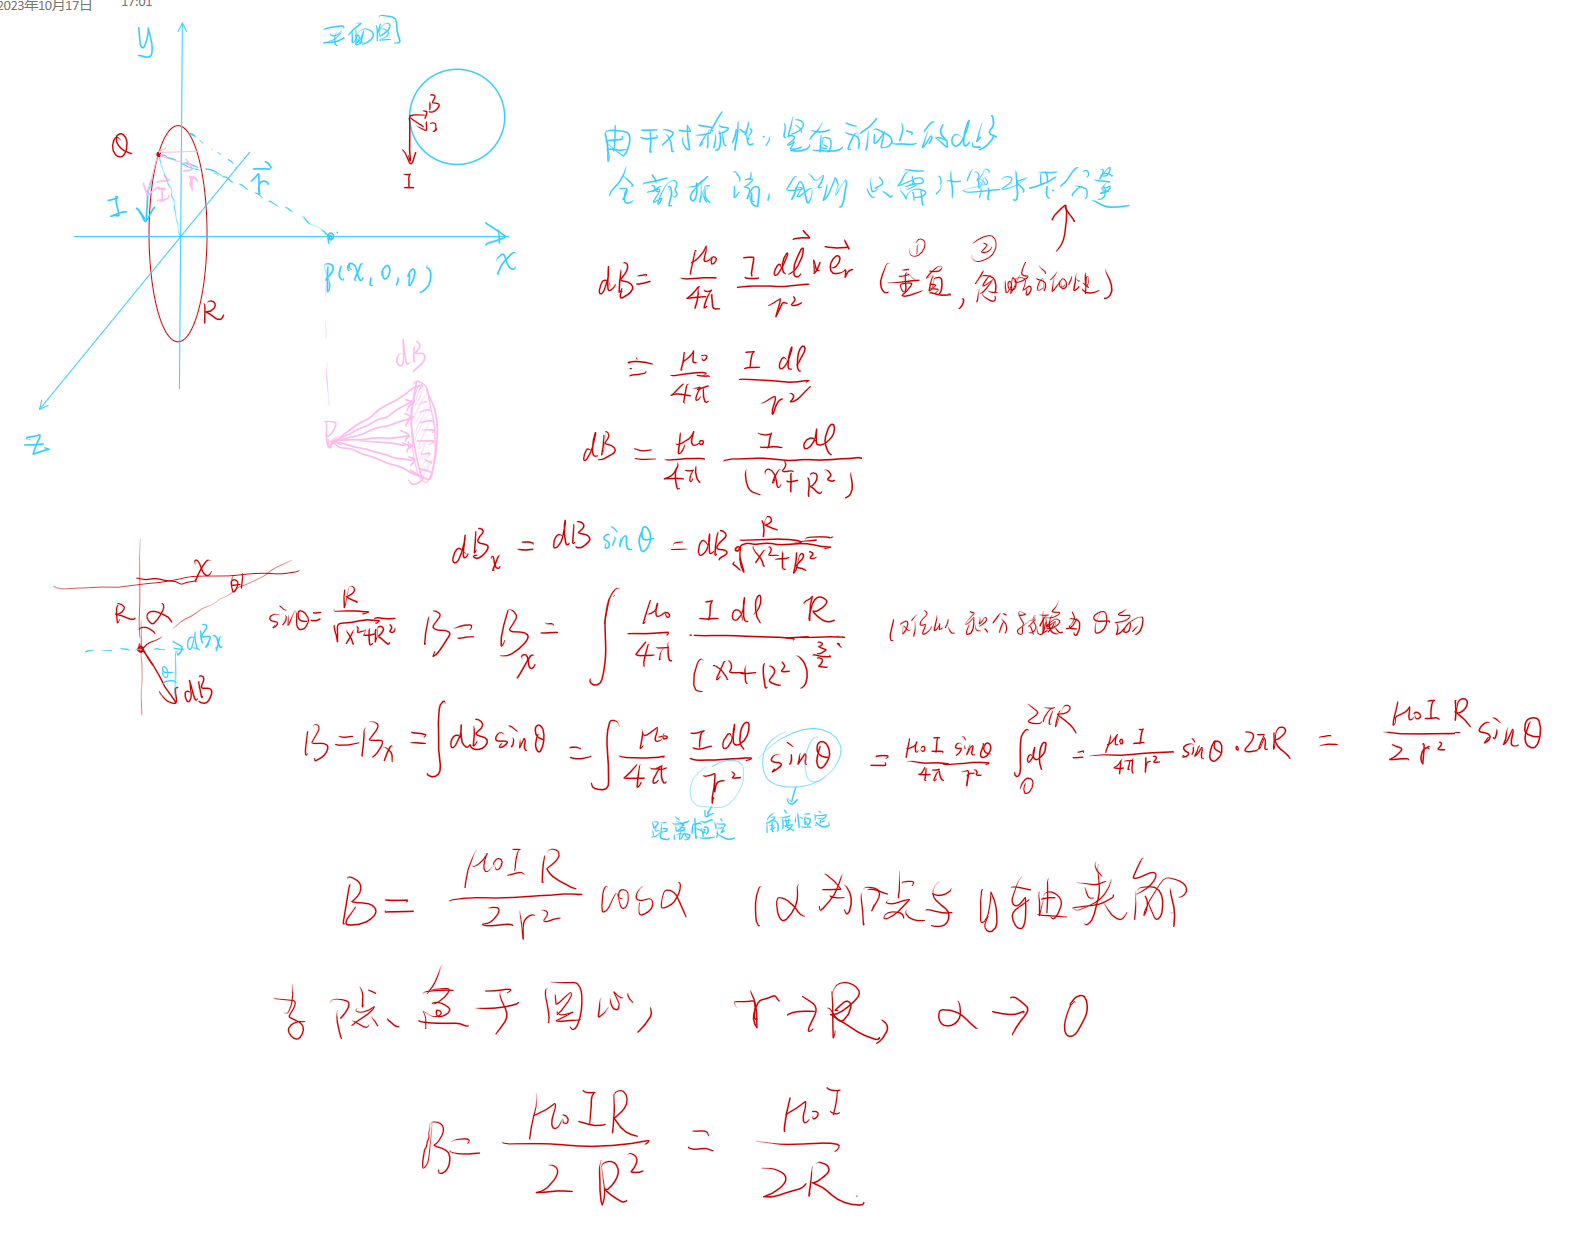 2023年10月17日 17:01
y
平面图
Q
B
I
I
r
r
x
P(x,0,0)
R
z
dB
P
由于对称性,竖直方向上的dB
全部抵消,我们只需计算水平分量
dB= μ₀/4π I dl⃗×e⃗r/r² (①垂直,②忽略方向性)
= μ₀/4π I dl/r²
dB = μ₀/4π I dl/(x²+R²)
dBx = dB sinθ = dB R/√(x²+R²)
x
θ
R
α
dBx
θ
dB
sinθ= R/√(x²+R²)
B= Bx = ∫ μ₀/4π I dl R/(x²+R²)^(3/2) 积分转换为θ的
B=Bx =∫dB sinθ =∫ μ₀/4π I dl/r² sinθ = μ₀I sinθ/4π r² ∫₀^2πR dl = μ₀ I/4π r² sinθ·2πR = μ₀I R/2 r² sinθ
距离恒定 角度恒定
B= μ₀I R/2r² cosα (α为P点与y轴夹角
当P点位于圆心, r→R, α→0
B= μ₀IR/2 R² = μ₀I/2R